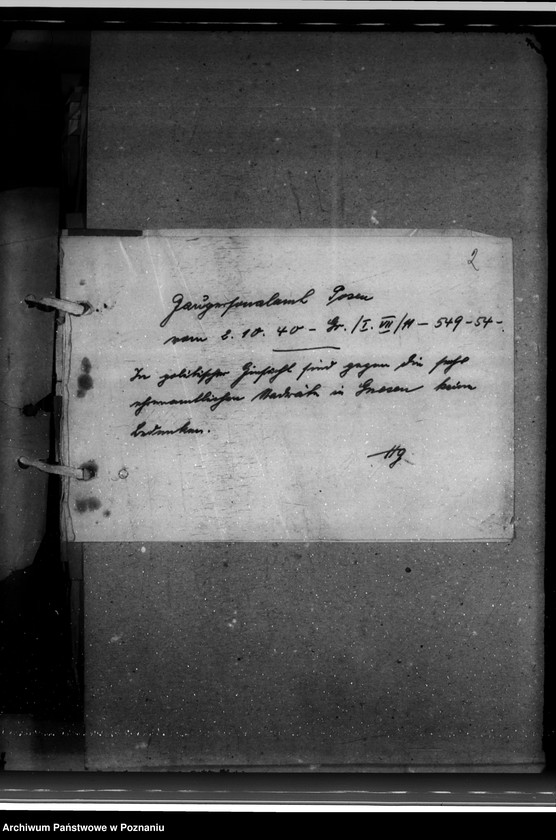 2
Gaupersonalamt Posen
vom 2. 10. 40 – Gr. /I. VII/11 – 549-54-.
In politischer Hinsicht sind gegen die sechs
ehrenamtlichen Stadträte in Gnesen keine
Bedenken.
Hg
Archiwum Państwowe w Poznaniu